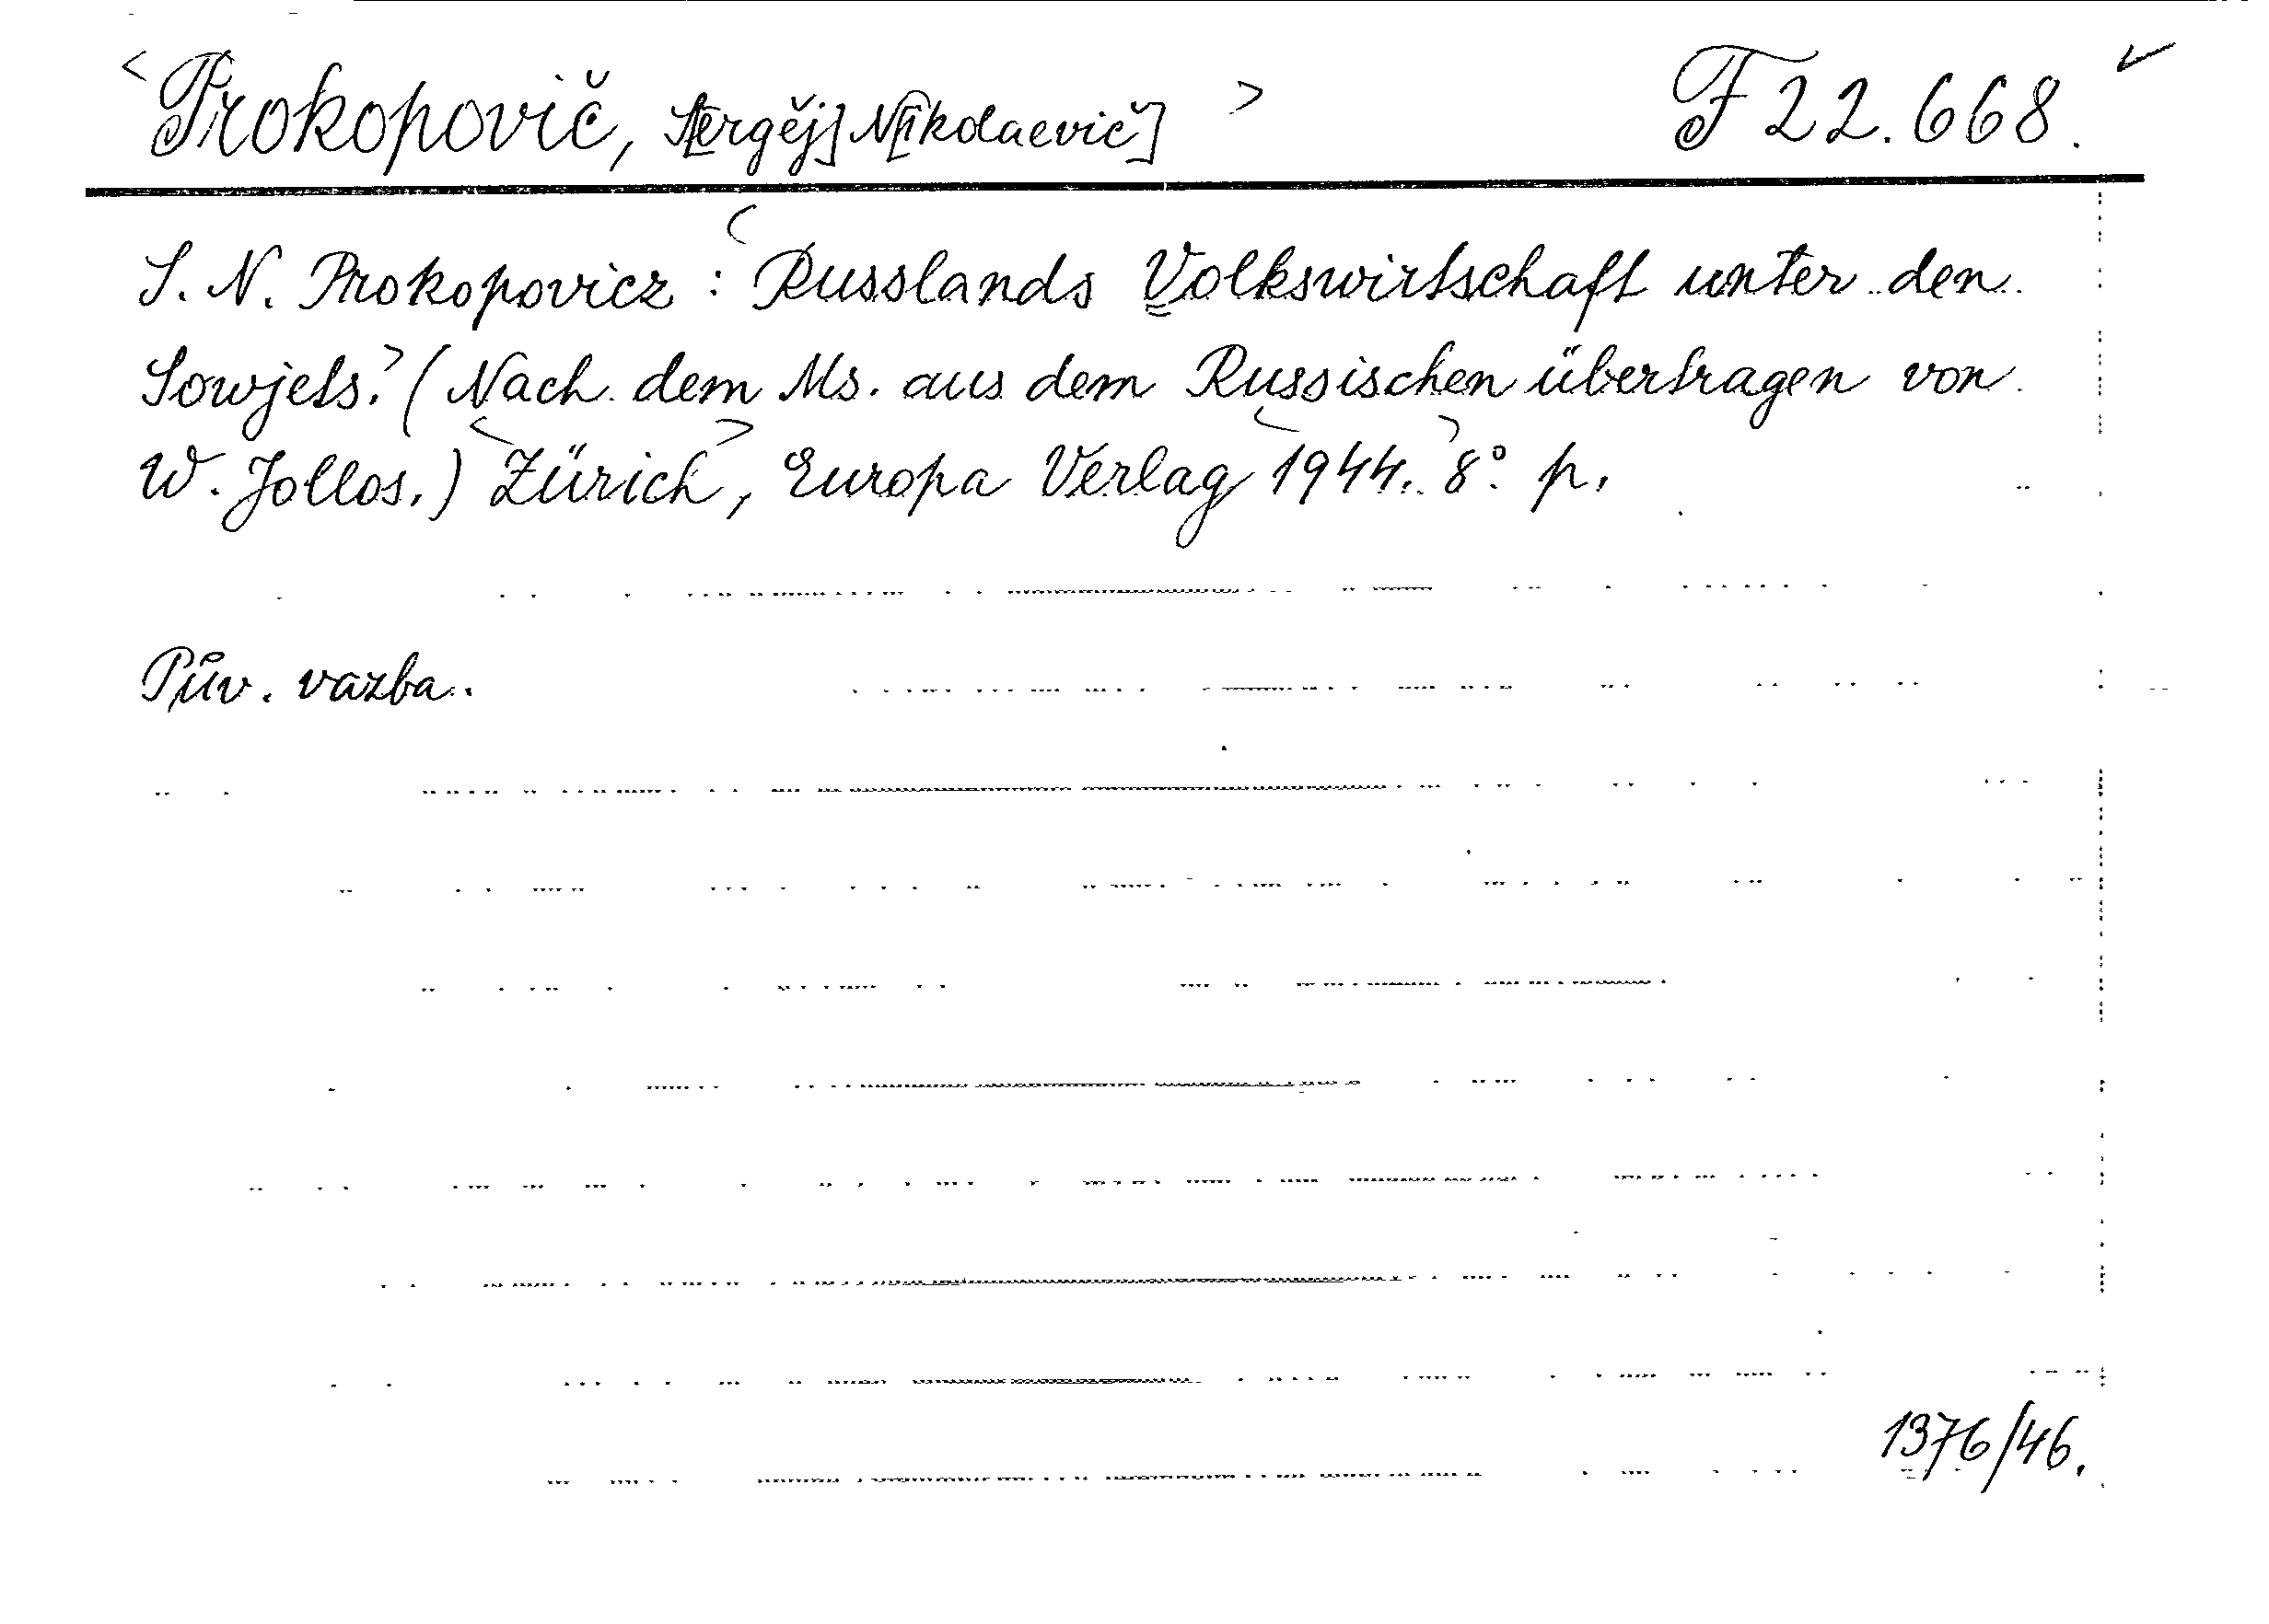 <Prokopovič, S[ergěj] N[ikolaevič]> F 22.668. ✓
S. N. Prokopovicz: <Russlands Volkswirtschaft unter den
Sowjets.> (Nach dem Ms. aus dem Russischen übertragen von
W. Jollos.) <Zürich>, Europa Verlag <1944.> 8° p.
Pův. vazba.
1376/46.